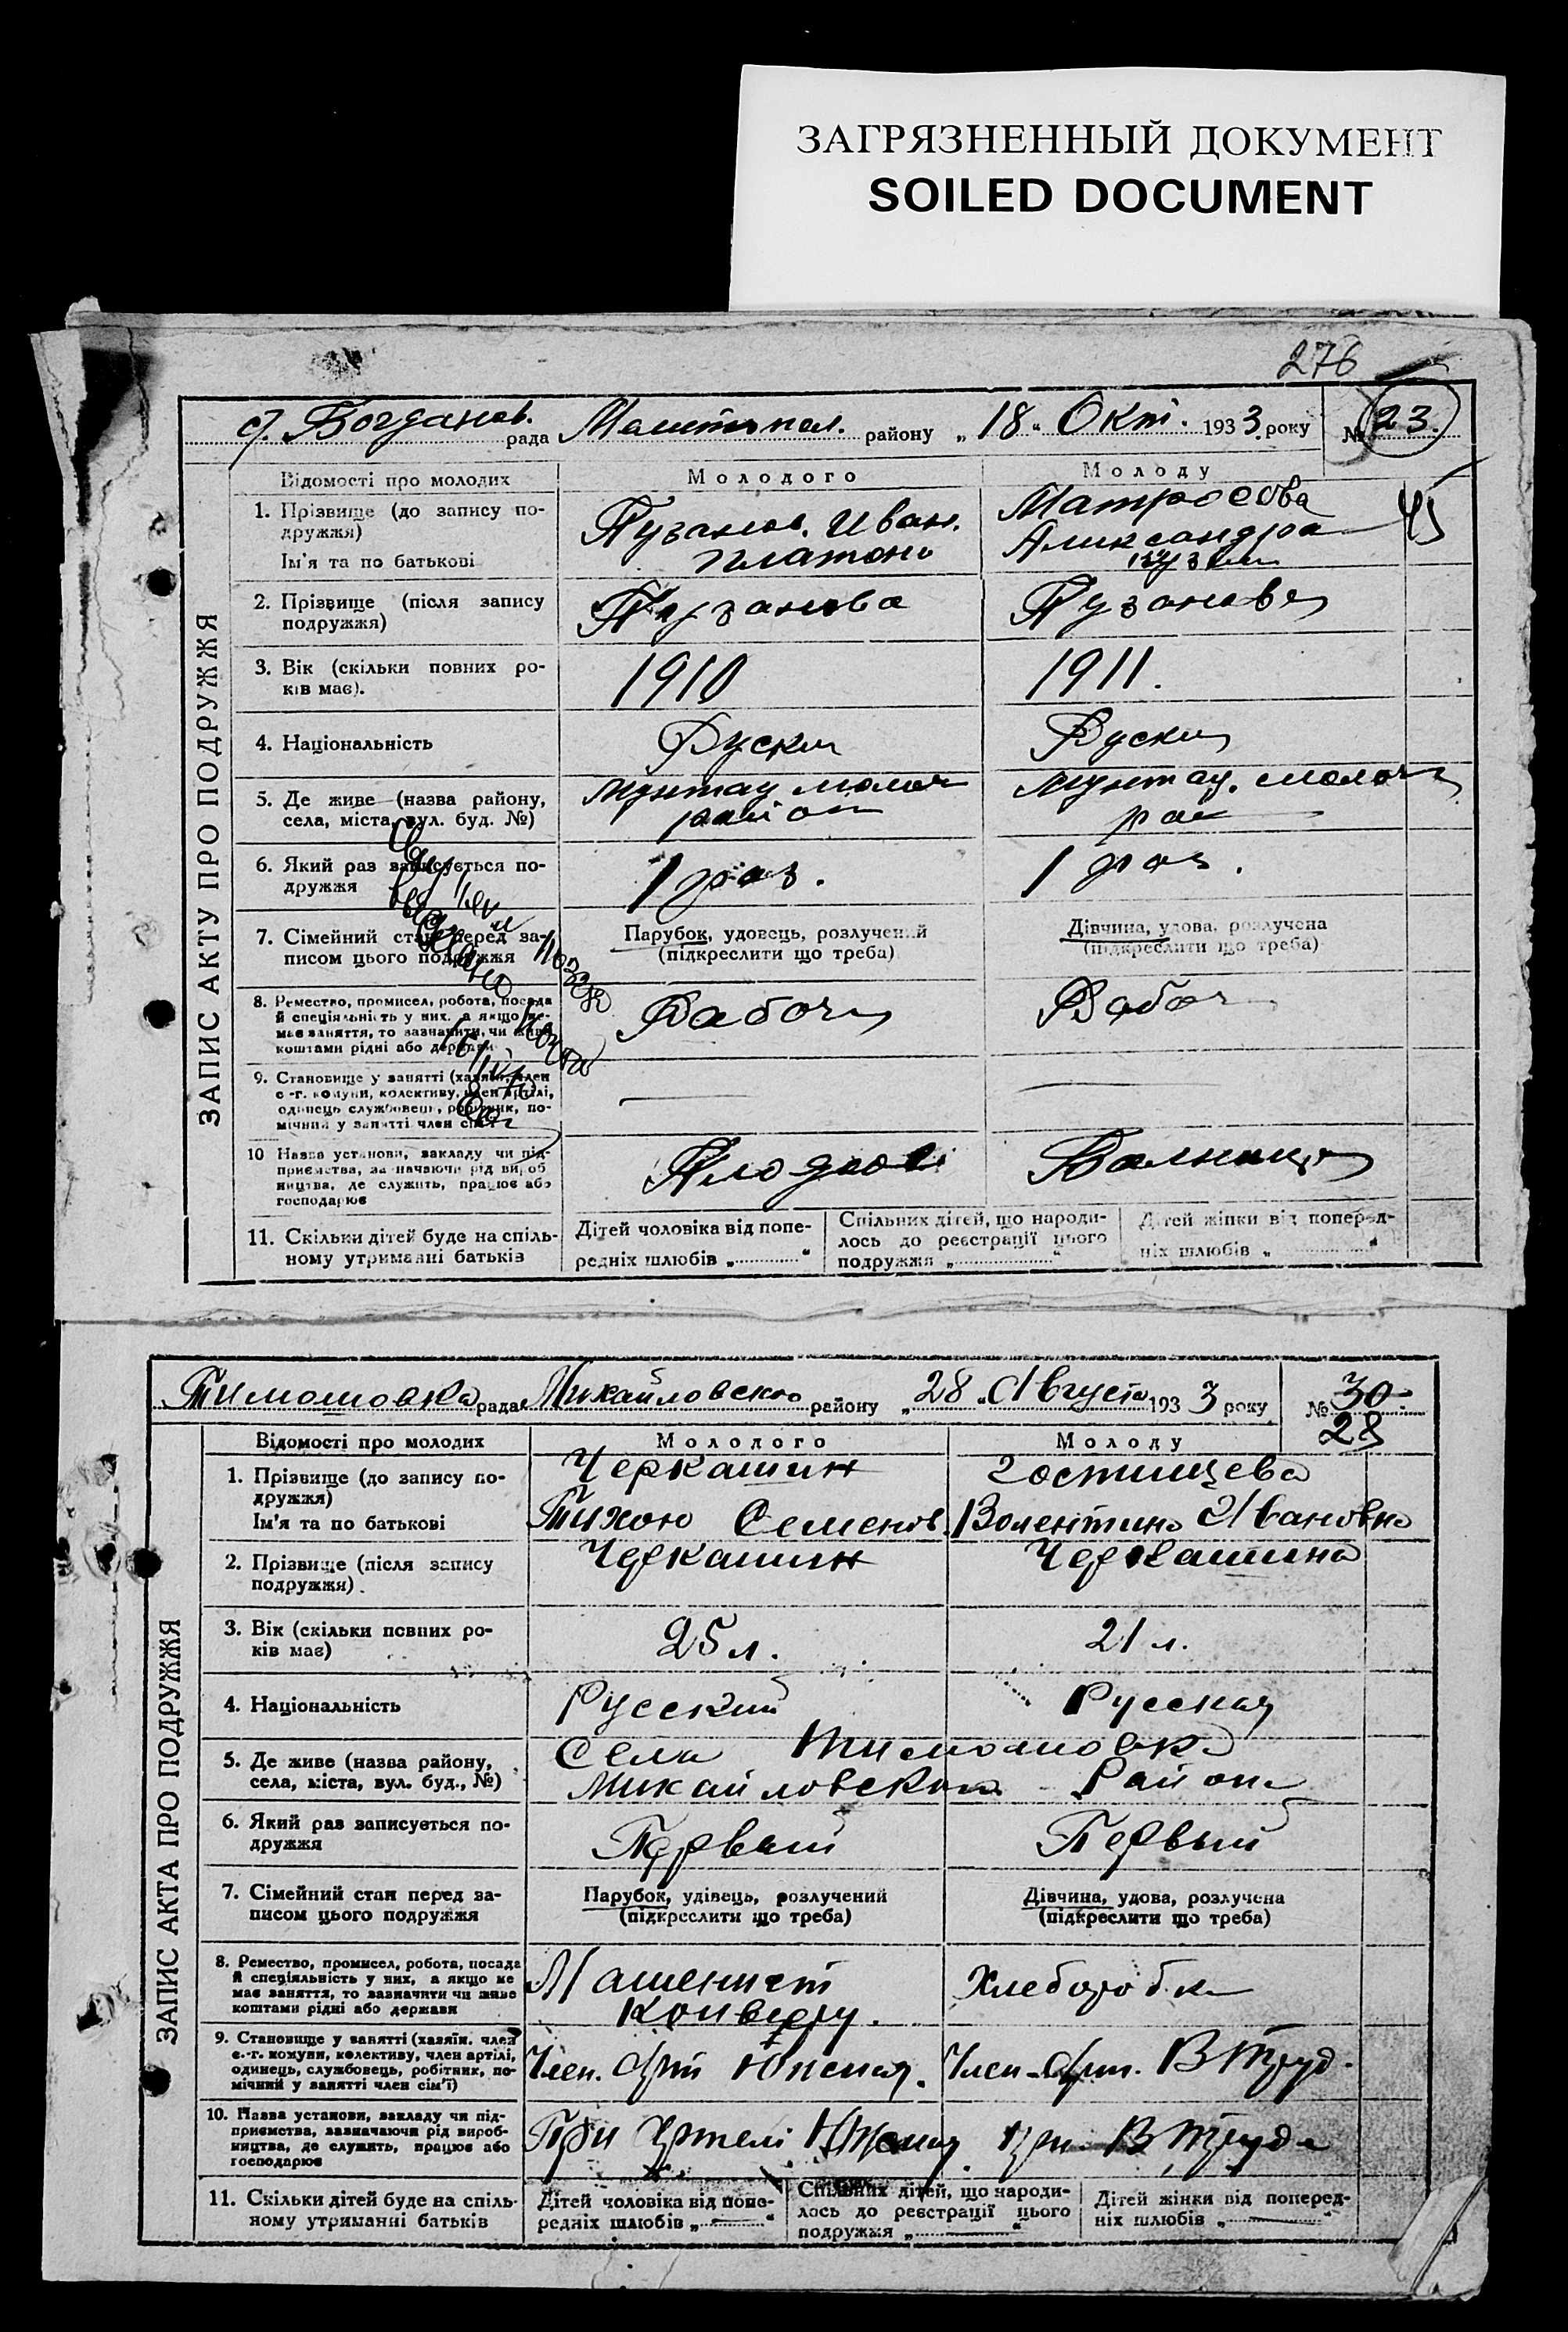 ЗАГРЯЗНЕННЫЙ ДОКУМЕНТ
SOILED DOCUMENT
276
с. Богданов. рада Молитопол. району „18“ Окт. 1933 року № 23.
Відомості про молодих Молодого Молоду
1. Прізвище (до запису по-
дружжя)
Ім'я та по батькові
Пузанов. Иван.
Платоно
Матросова
Александра
45
2. Прізвище (після запису
подружжя)
Пузанова
Пузанова
3. Вік (скільки повних ро-
ків має).
1910
1911.
4. Національність
Руски
Руски
5. Де живе (назва району,
села, міста, вул. буд. №)
Мунтау молоч
район
Мунтау. молоч
рае
6. Який раз записується по-
дружжя
1 раз.
1 раз.
7. Сімейний стан перед за-
писом цього подружжя
Парубок, удовець, розлучений
(підкреслити що треба)
Дівчина, удова, розлучена
(підкреслити що треба)
8. Ремество, промисел, робота, посада
й спеціяльність у них, а якщо не-
має заняття, то зазначити, чи живе
коштами рідні або держави
Рабочи
Рабоч
9. Становище у занятті (хазяїн, член
с.-г. комуни, колективу, член артілі,
одинець службовець, робітник, по-
мічний у занятті член сім'ї
10 Назва установи, закладу чи під-
приємства, зазначаючи рід вироб
ництва, де служить, працює або
господарює
11. Скільки дітей буде на спіль-
ному утриманні батьків
Дітей чоловіка від попе-
редніх шлюбів „ “
Спільних дітей, що народи-
лось до реєстрації цього
подружжя „ “
Дітей жінки від поперед-
ніх шлюбів „ “
ЗАПИС АКТУ ПРО ПОДРУЖЖЯ
Тимошовка рада Михайловского району „28“ Августа 1933 року № 30
28
Відомості про молодих Молодого Молоду
1. Прізвище (до запису по-
дружжя)
Ім'я та по батькові
Черкашин
Тихон Семенов.
Гостищева
Волентина Ивановна
2. Прізвище (після запису
подружжя).
Черкашин
Черкашина
3. Вік (скільки повних ро-
ків має)
25 л.
21 л.
4. Національність
Русский
Русская
5. Де живе (назва району,
села, міста, вул. буд., №)
Села Тимошовка
Михайловского Района
6. Який раз записується по-
дружжя
Первый
Первый
7. Сімейний стан перед за-
писом цього подружжя
Парубок, удівець, розлучений
(підкреслити що треба)
Дівчина, удова, розлучена
(підкреслити що треба)
8. Ремество, промисел, робота, посада
й спеціяльність у них, а якщо не
має заняття, то зазначити чи живе
коштами рідні або держави
Машенист
Хлеборобка
9. Становище у занятті (хазяїн. член
с.-г. комуни, колективу, член артілі,
одинець, службовець, робітник, по-
мічний у занятті член сім'ї)
Член. Арт
Член. Арт. В Труд.
10. Назва установи, закладу чи під-
приємства, зазначаючи рід вироб-
ництва, де служить, працює або
господарює
При Артелі
при В Труда
11. Скільки дітей буде на спіль-
ному утриманні батьків
Дітей чоловіка від попе-
редніх шлюбів „ “
Спільних дітей, що народи-
лось до реєстрації цього
подружжя „ “
Дітей жінки від поперед-
ніх шлюбів „ “
ЗАПИС АКТА ПРО ПОДРУЖЖЯ